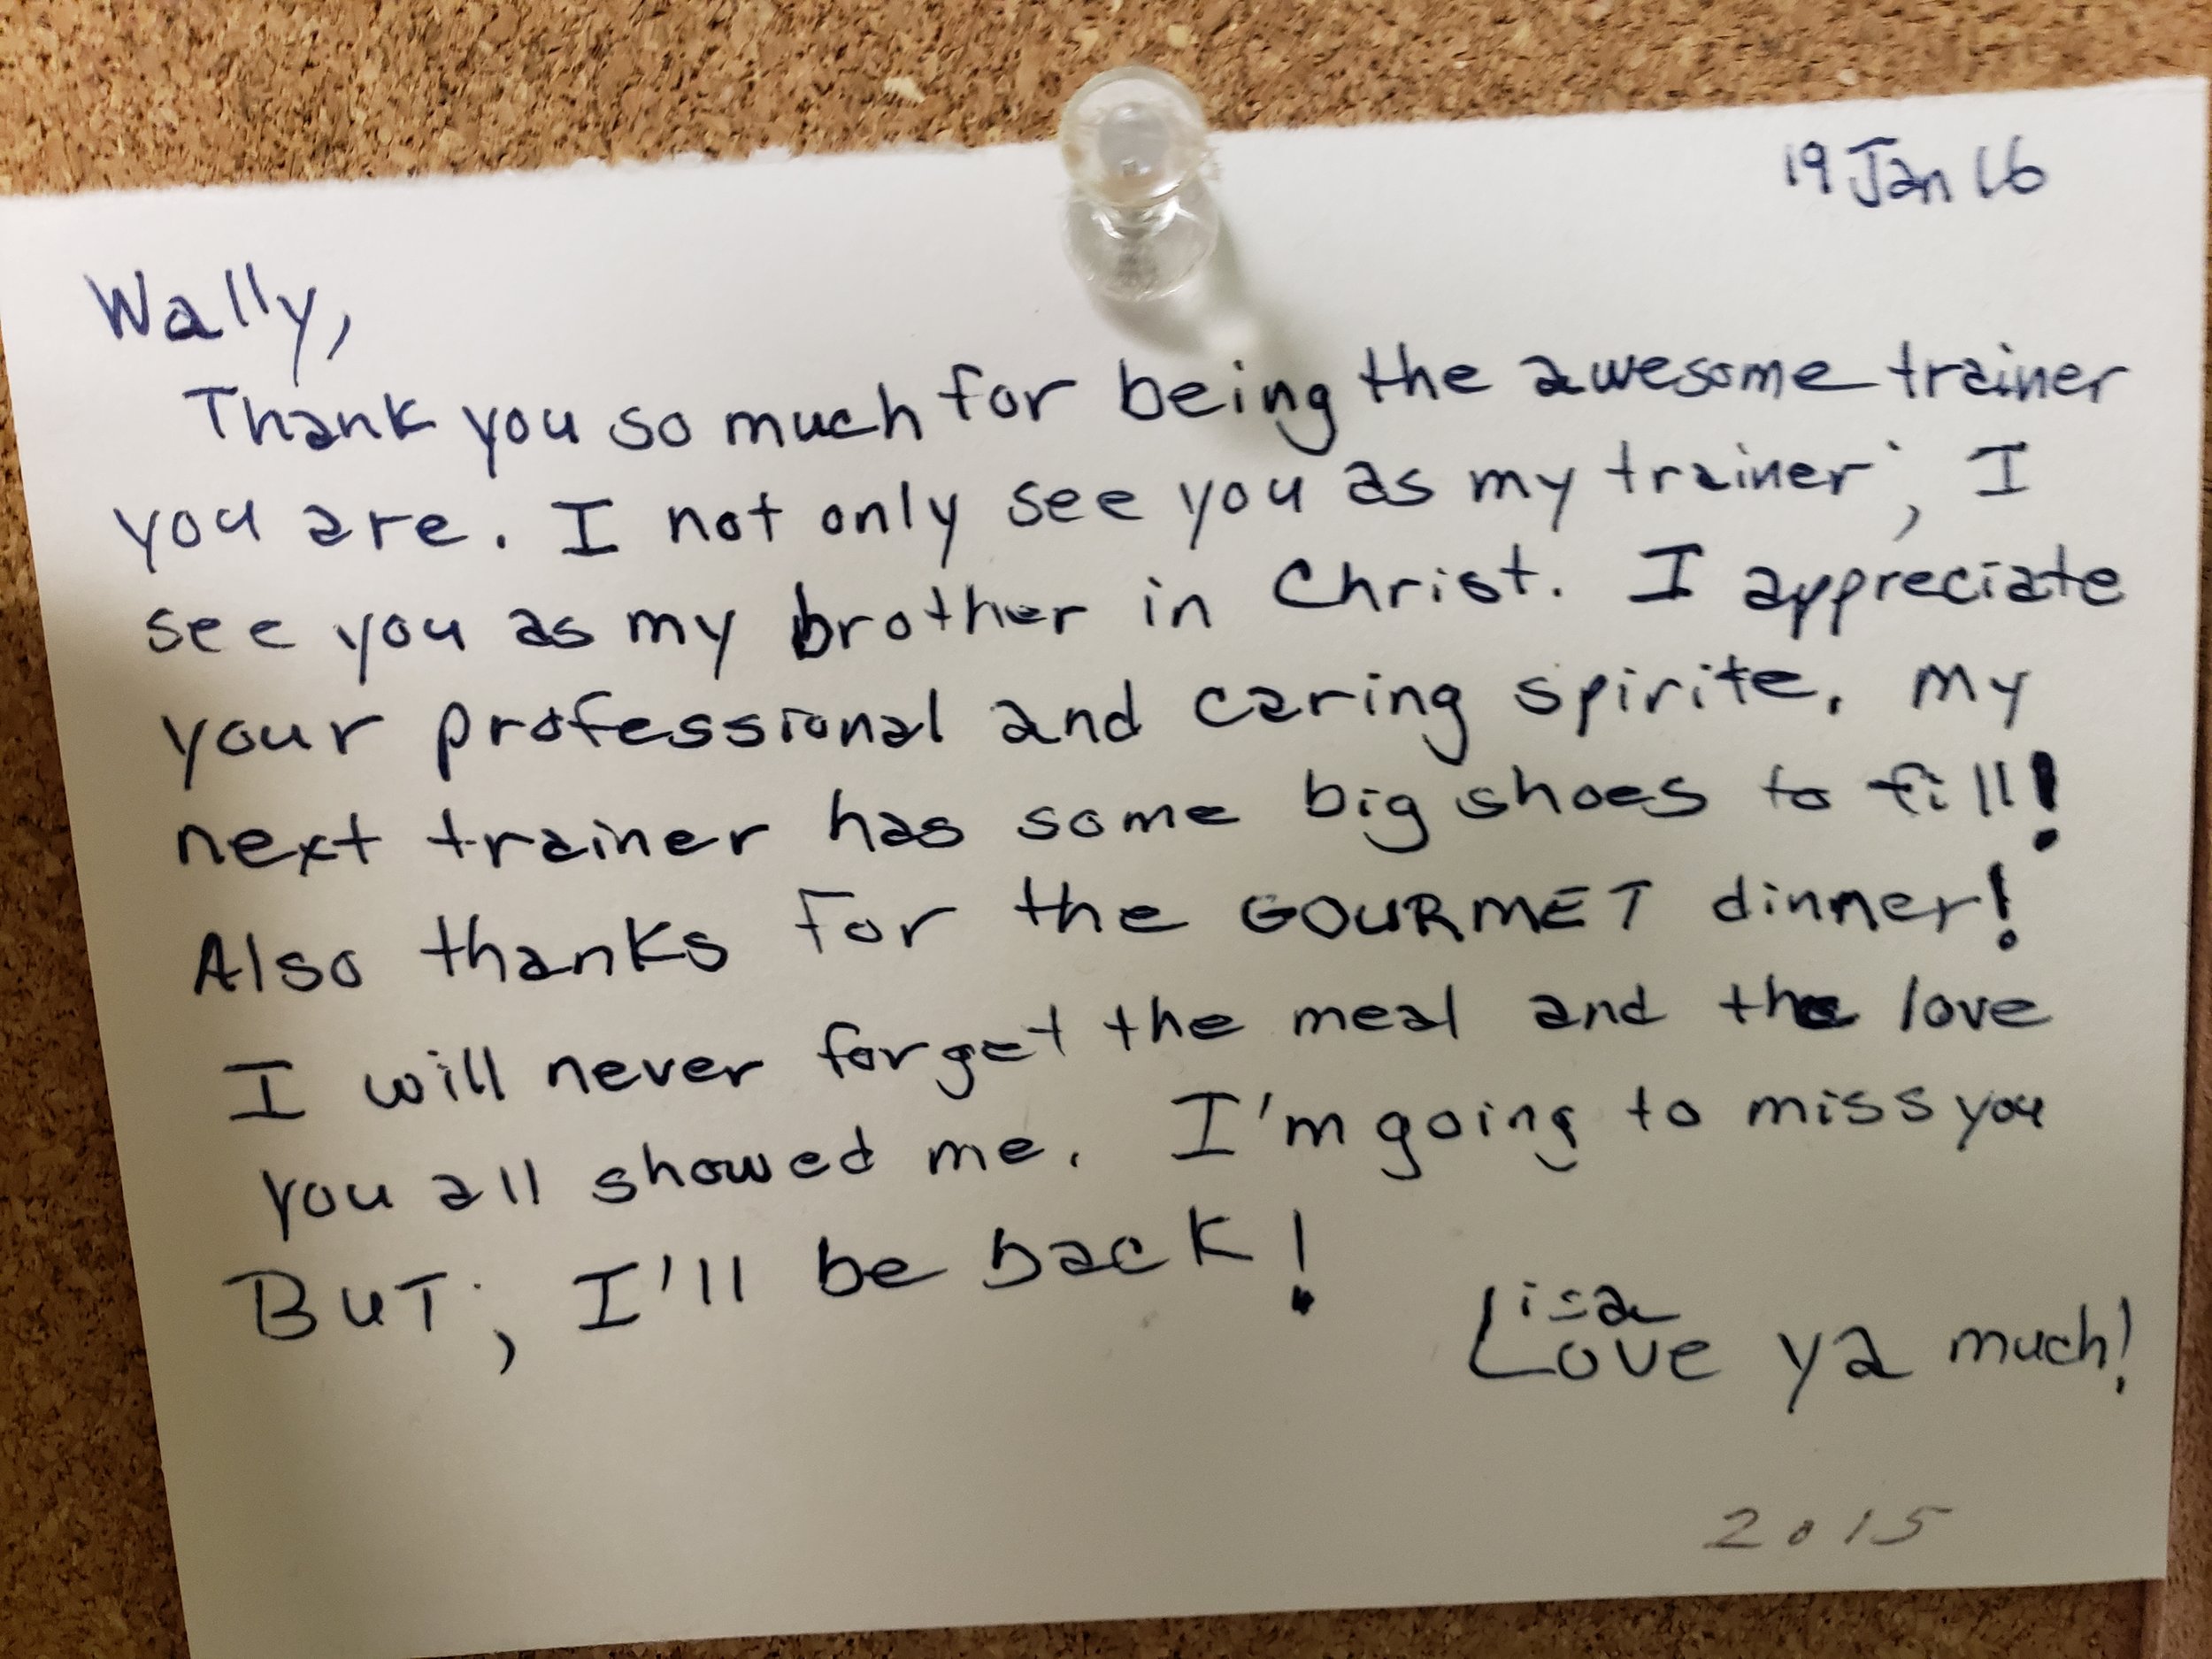 19 Jan 16
Wally,
Thank you so much for being the awesome trainer
you are. I not only see you as my trainer; I
see you as my brother in Christ. I appreciate
your professional and caring spirite. My
next trainer has some big shoes to fill!
Also thanks for the GOURMET dinner!
I will never forget the meal and the love
you all showed me. I'm going to miss you
BUT; I'll be back!
Lisa
Love ya much!
2015